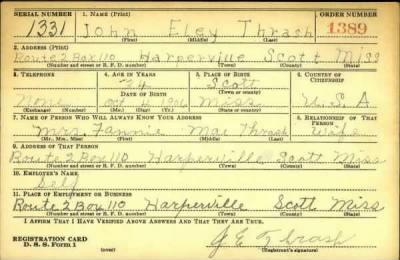 SERIAL NUMBER 1. NAME (Print) ORDER NUMBER
1331 John Eley Thrash 1389
(First) (Middle) (Last)
2. ADDRESS (Print)
Route 2 Box 110 Harperville Scott Miss
(Number and street or R. F. D. number) (Town) (County) (State)
3. TELEPHONE 4. AGE IN YEARS 5. PLACE OF BIRTH 6. COUNTRY OF CITIZENSHIP
34 Scott
DATE OF BIRTH (Town or county)
None Oct 4 1906 Miss U.S.A.
(Exchange) (Number) (Mo.) (Day) (Yr.) (State or country)
7. NAME OF PERSON WHO WILL ALWAYS KNOW YOUR ADDRESS 8. RELATIONSHIP OF THAT PERSON
Mrs Fannie Mae Thrash Wife
(Mr., Mrs., Miss) (First) (Middle) (Last)
9. ADDRESS OF THAT PERSON
Route 2 Box 110 Harperville Scott Miss
(Number and street or R. F. D. number) (Town) (County) (State)
10. EMPLOYER'S NAME
Self
11. PLACE OF EMPLOYMENT OR BUSINESS
Route 2 Box 110 Harperville Scott Miss
(Number and street or R. F. D. number) (Town) (County) (State)
I AFFIRM THAT I HAVE VERIFIED ABOVE ANSWERS AND THAT THEY ARE TRUE.
REGISTRATION CARD
D. S. S. Form 1 (over) J E Thrash
(Registrant's signature)